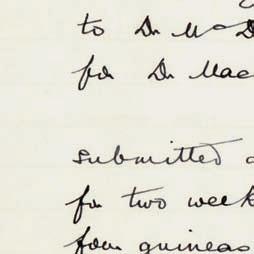 to Dr McD
for Dr Mac
submitted
for two week
four guineas